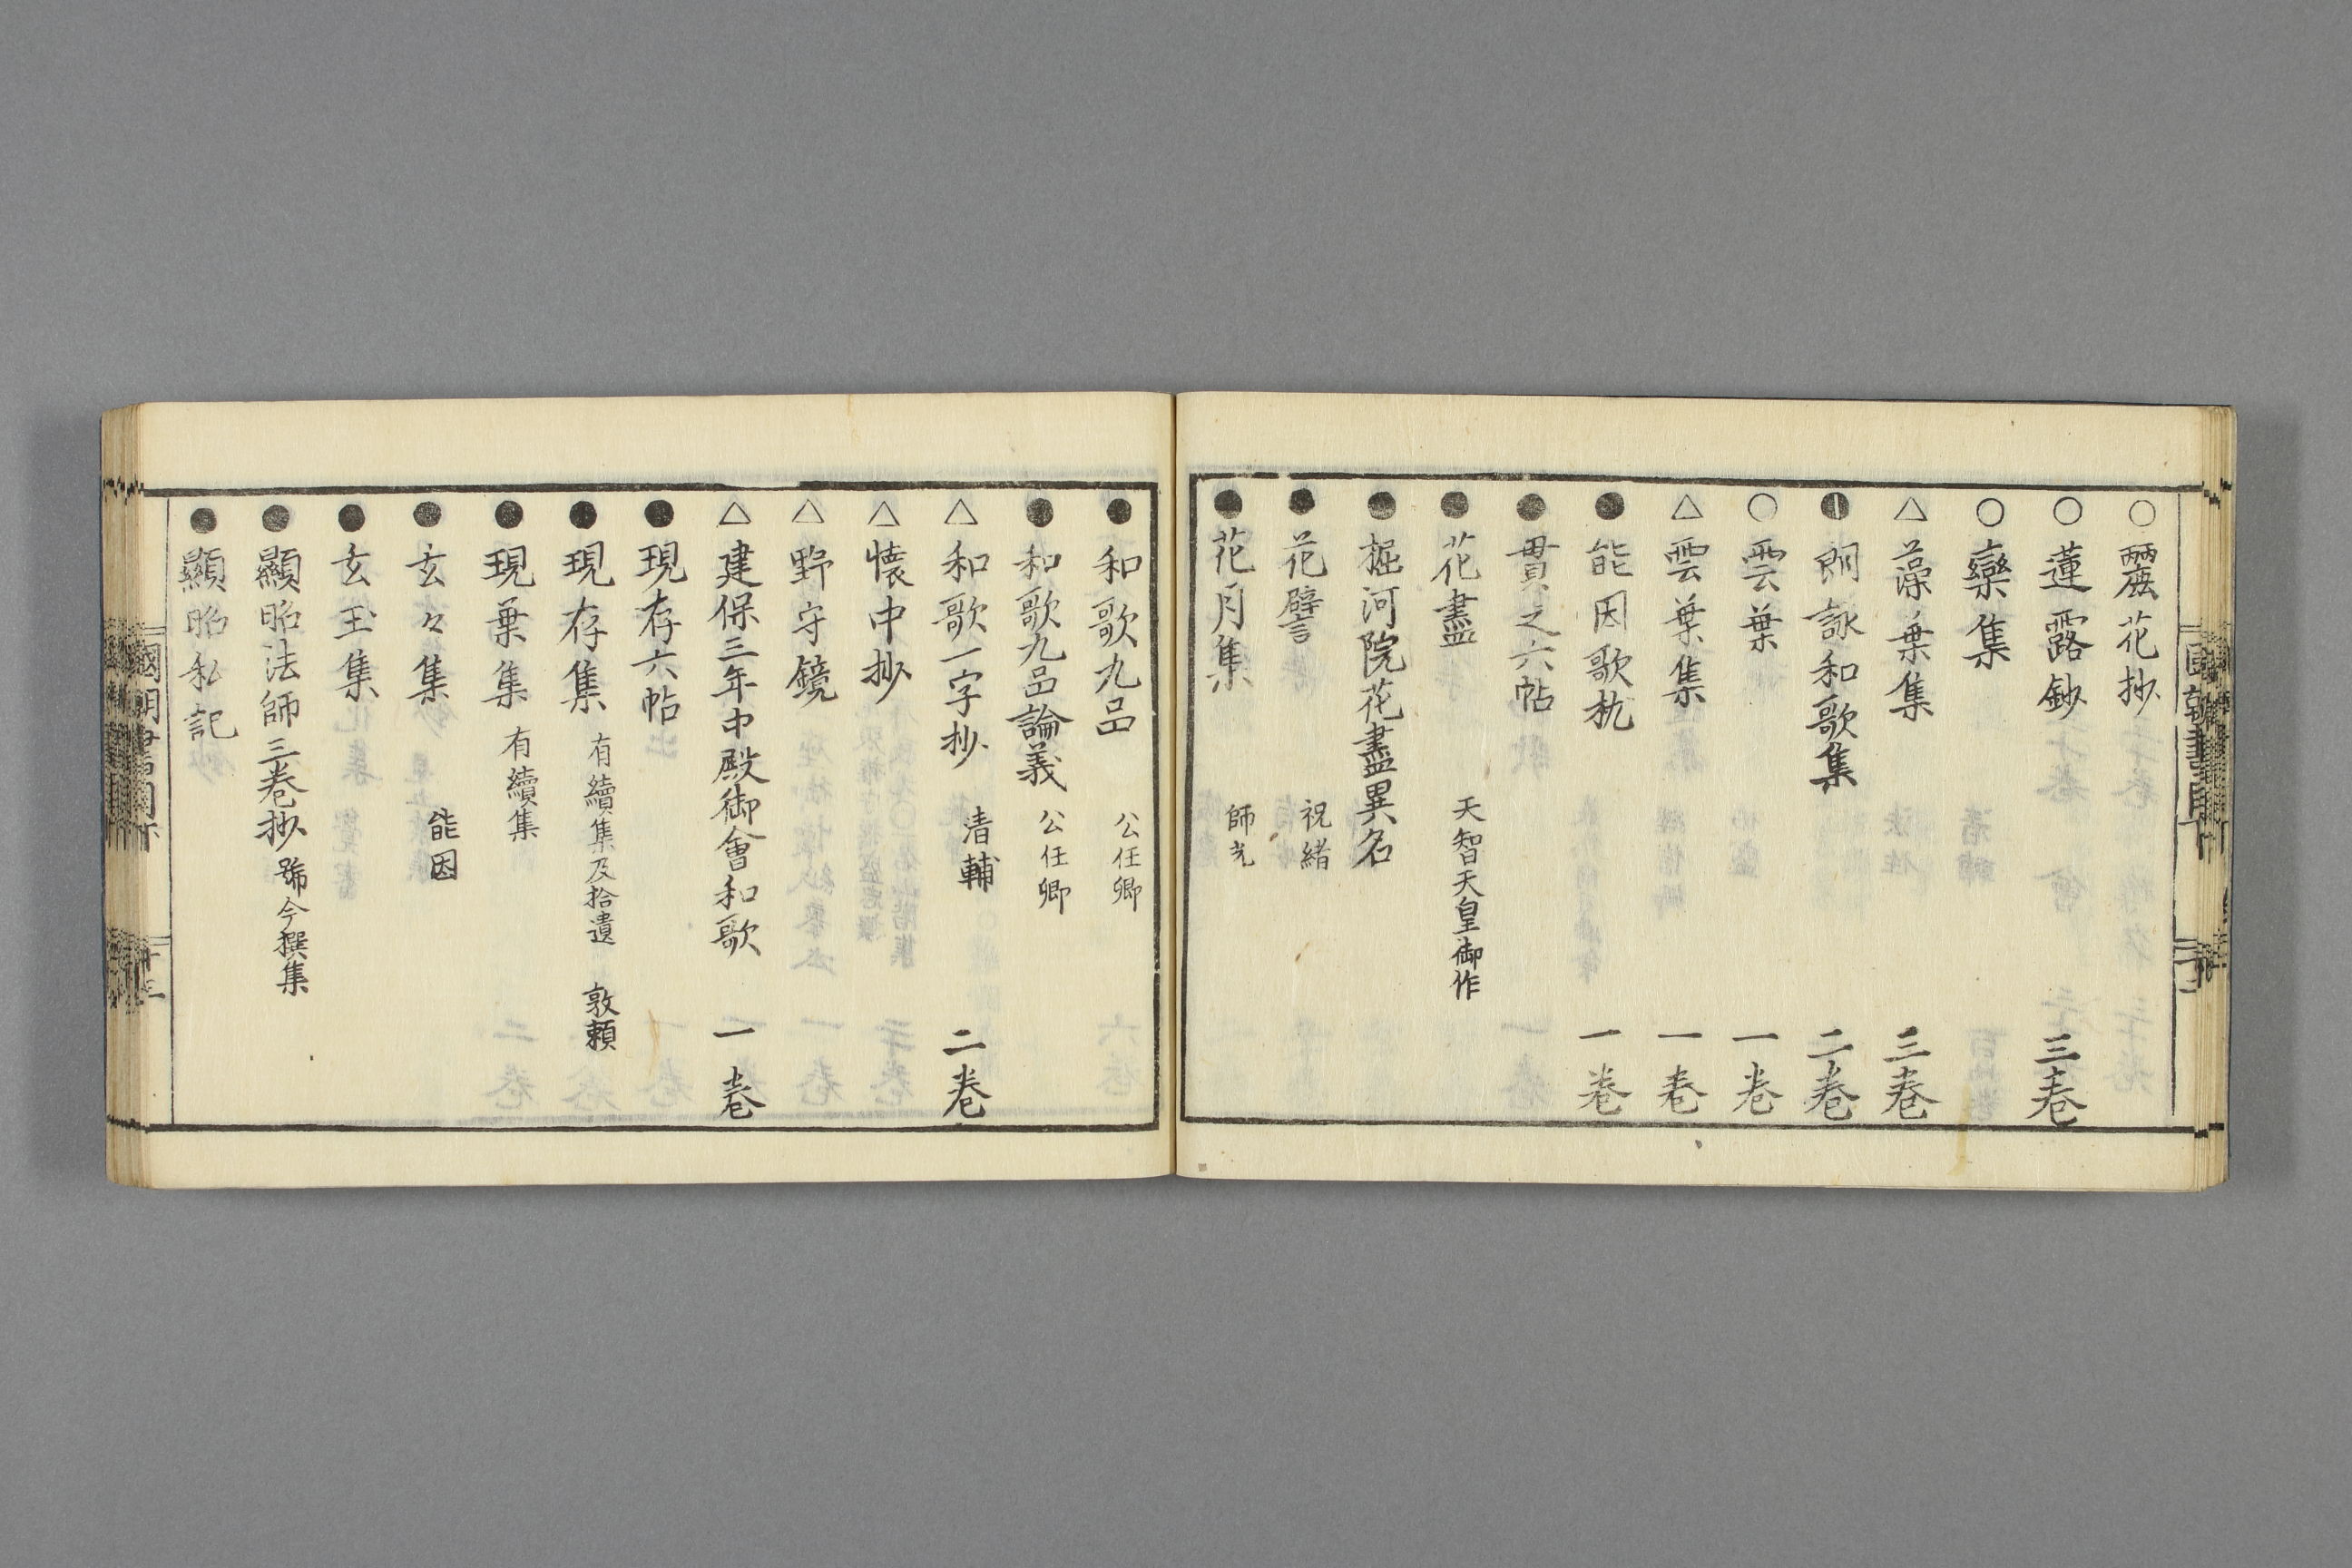 ○麗花抄
○蓮露鈔 三巻
○欒集
△藻葉集 三巻
朗詠和歌集 二巻
○雲葉 一巻
△雲葉集 一巻
●能因歌枕 一巻
●貫之六帖
●花盡 天智天皇御作
●堀河院花盡異名
●花譬 祝緒
●花月集 師光
●和歌九品 公任卿
●和歌九品論義 公任卿
△和歌一字抄 清輔 二巻
△懐中抄
△野守鏡
△建保三年中殿御會和歌 一巻
●現存六帖
●現存集 有續集及拾遺 敦頼
●現葉集 有續集
●玄々集 能因
●玄玉集
●顯昭法師三巻抄 號今撰集
●顯昭私記